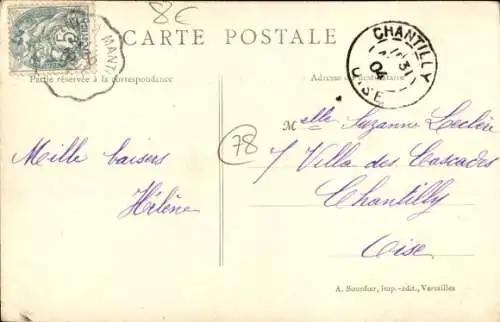 8€
CARTE POSTALE
MANT
5
CHANTILLY
31
04
OISE
Partie réservée à la correspondance
Adresse du destinataire
Melle Suzanne Leclère
78
7 Villa des Cascades
Mille baisers
Chantilly
Hélène
Oise
A. Bourdier, imp.-édit., Versailles